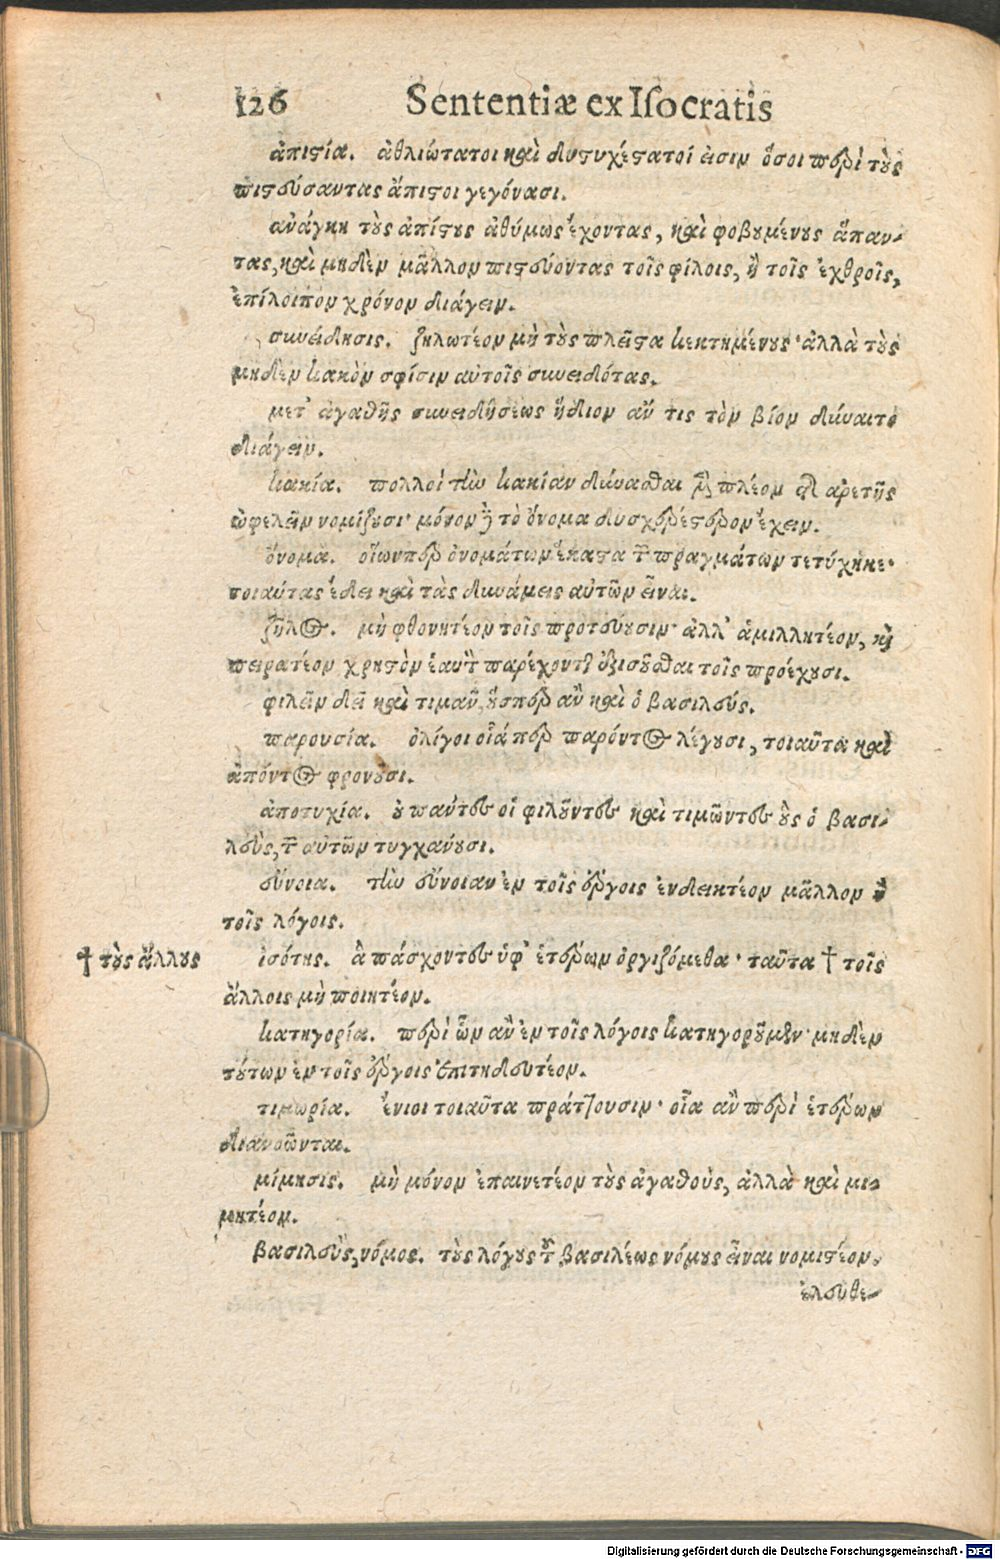 126 Sententiæ ex Isocratis
ἀπιστία. ἀθλιώτατοι καὶ δυστυχέστατοί εἰσιν ὅσοι περὶ τοὺς
πιστεύσαντας ἄπιστοι γεγόνασι.
ἀνάγκη τοὺς ἀπίστους ἀθύμως ἔχοντας, καὶ φοβουμένους ἅπαν-
τας, καὶ μηδὲν μᾶλλον πιστεύοντας τοῖς φίλοις, ἢ τοῖς ἐχθροῖς,
ἐπίλοιπον χρόνον διάγειν.
συνείδησις. ζηλωτέον μὴ τοὺς πλεῖστα κεκτημένους· ἀλλὰ τοὺς
μηδὲν κακὸν σφίσιν αὐτοῖς συνειδότας.
μετ' ἀγαθῆς συνειδήσεως ἥδιον ἄν τις τὸν βίον δύναιτο
διάγειν.
κακία. πολλοὶ τὴν κακίαν δύνασθαι μὲν πλέον τῆς ἀρετῆς
ὠφελεῖν νομίζουσι· μόνον δὲ τὸ ὄνομα δυσχερέστερον ἔχειν.
ὄνομα. οἵωνπερ ὀνομάτων ἕκαστα τῶν πραγμάτων τετύχηκε·
τοιαύτας ἔδει καὶ τὰς δυνάμεις αὐτῶν εἶναι.
ζῆλος. μὴ φθονητέον τοῖς πρωτεύουσιν· ἀλλ' ἁμιλλητέον, καὶ
πειρατέον χρηστὸν ἑαυτὸν παρέχοντα ἐξισοῦσθαι τοῖς προέχουσι.
φιλεῖν δεῖ καὶ τιμᾶν, οὕσπερ ἂν καὶ ὁ βασιλεύς.
παρουσία. ὀλίγοι οἷά περ παρόντος λέγουσι, τοιαῦτα καὶ
ἀπόντος φρονοῦσι.
ἀποτυχία. οὐ πάντες οἱ φιλοῦντες καὶ τιμῶντες οὓς ὁ βασι-
λεὺς, τῶν αὐτῶν τυγχάνουσι.
εὔνοια. τὴν εὔνοιαν ἐν τοῖς ἔργοις ἐνδεικτέον μᾶλλον ἢ
τοῖς λόγοις.
† τοὺς ἄλλους
ἰσότης. ἃ πάσχοντες ὑφ' ἑτέρων ὀργιζόμεθα· ταῦτα † τοῖς
ἄλλοις μὴ ποιητέον.
κατηγορία. περὶ ὧν ἂν ἐν τοῖς λόγοις κατηγοροῦμεν· μηδὲν
τούτων ἐν τοῖς ἔργοις ἐπιτηδευτέον.
τιμωρία. ἔνιοι τοιαῦτα πράττουσιν· οἷα ἂν περὶ ἑτέρων
διανοῶνται.
μίμησις. μὴ μόνον ἐπαινετέον τοὺς ἀγαθούς, ἀλλὰ καὶ μι-
μητέον.
βασιλεὺς, νόμος. τοὺς λόγους τοῦ βασιλέως νόμους εἶναι νομιστέον.
ἐλευθε-
Digitalisierung gefördert durch die Deutsche Forschungsgemeinschaft - DFG